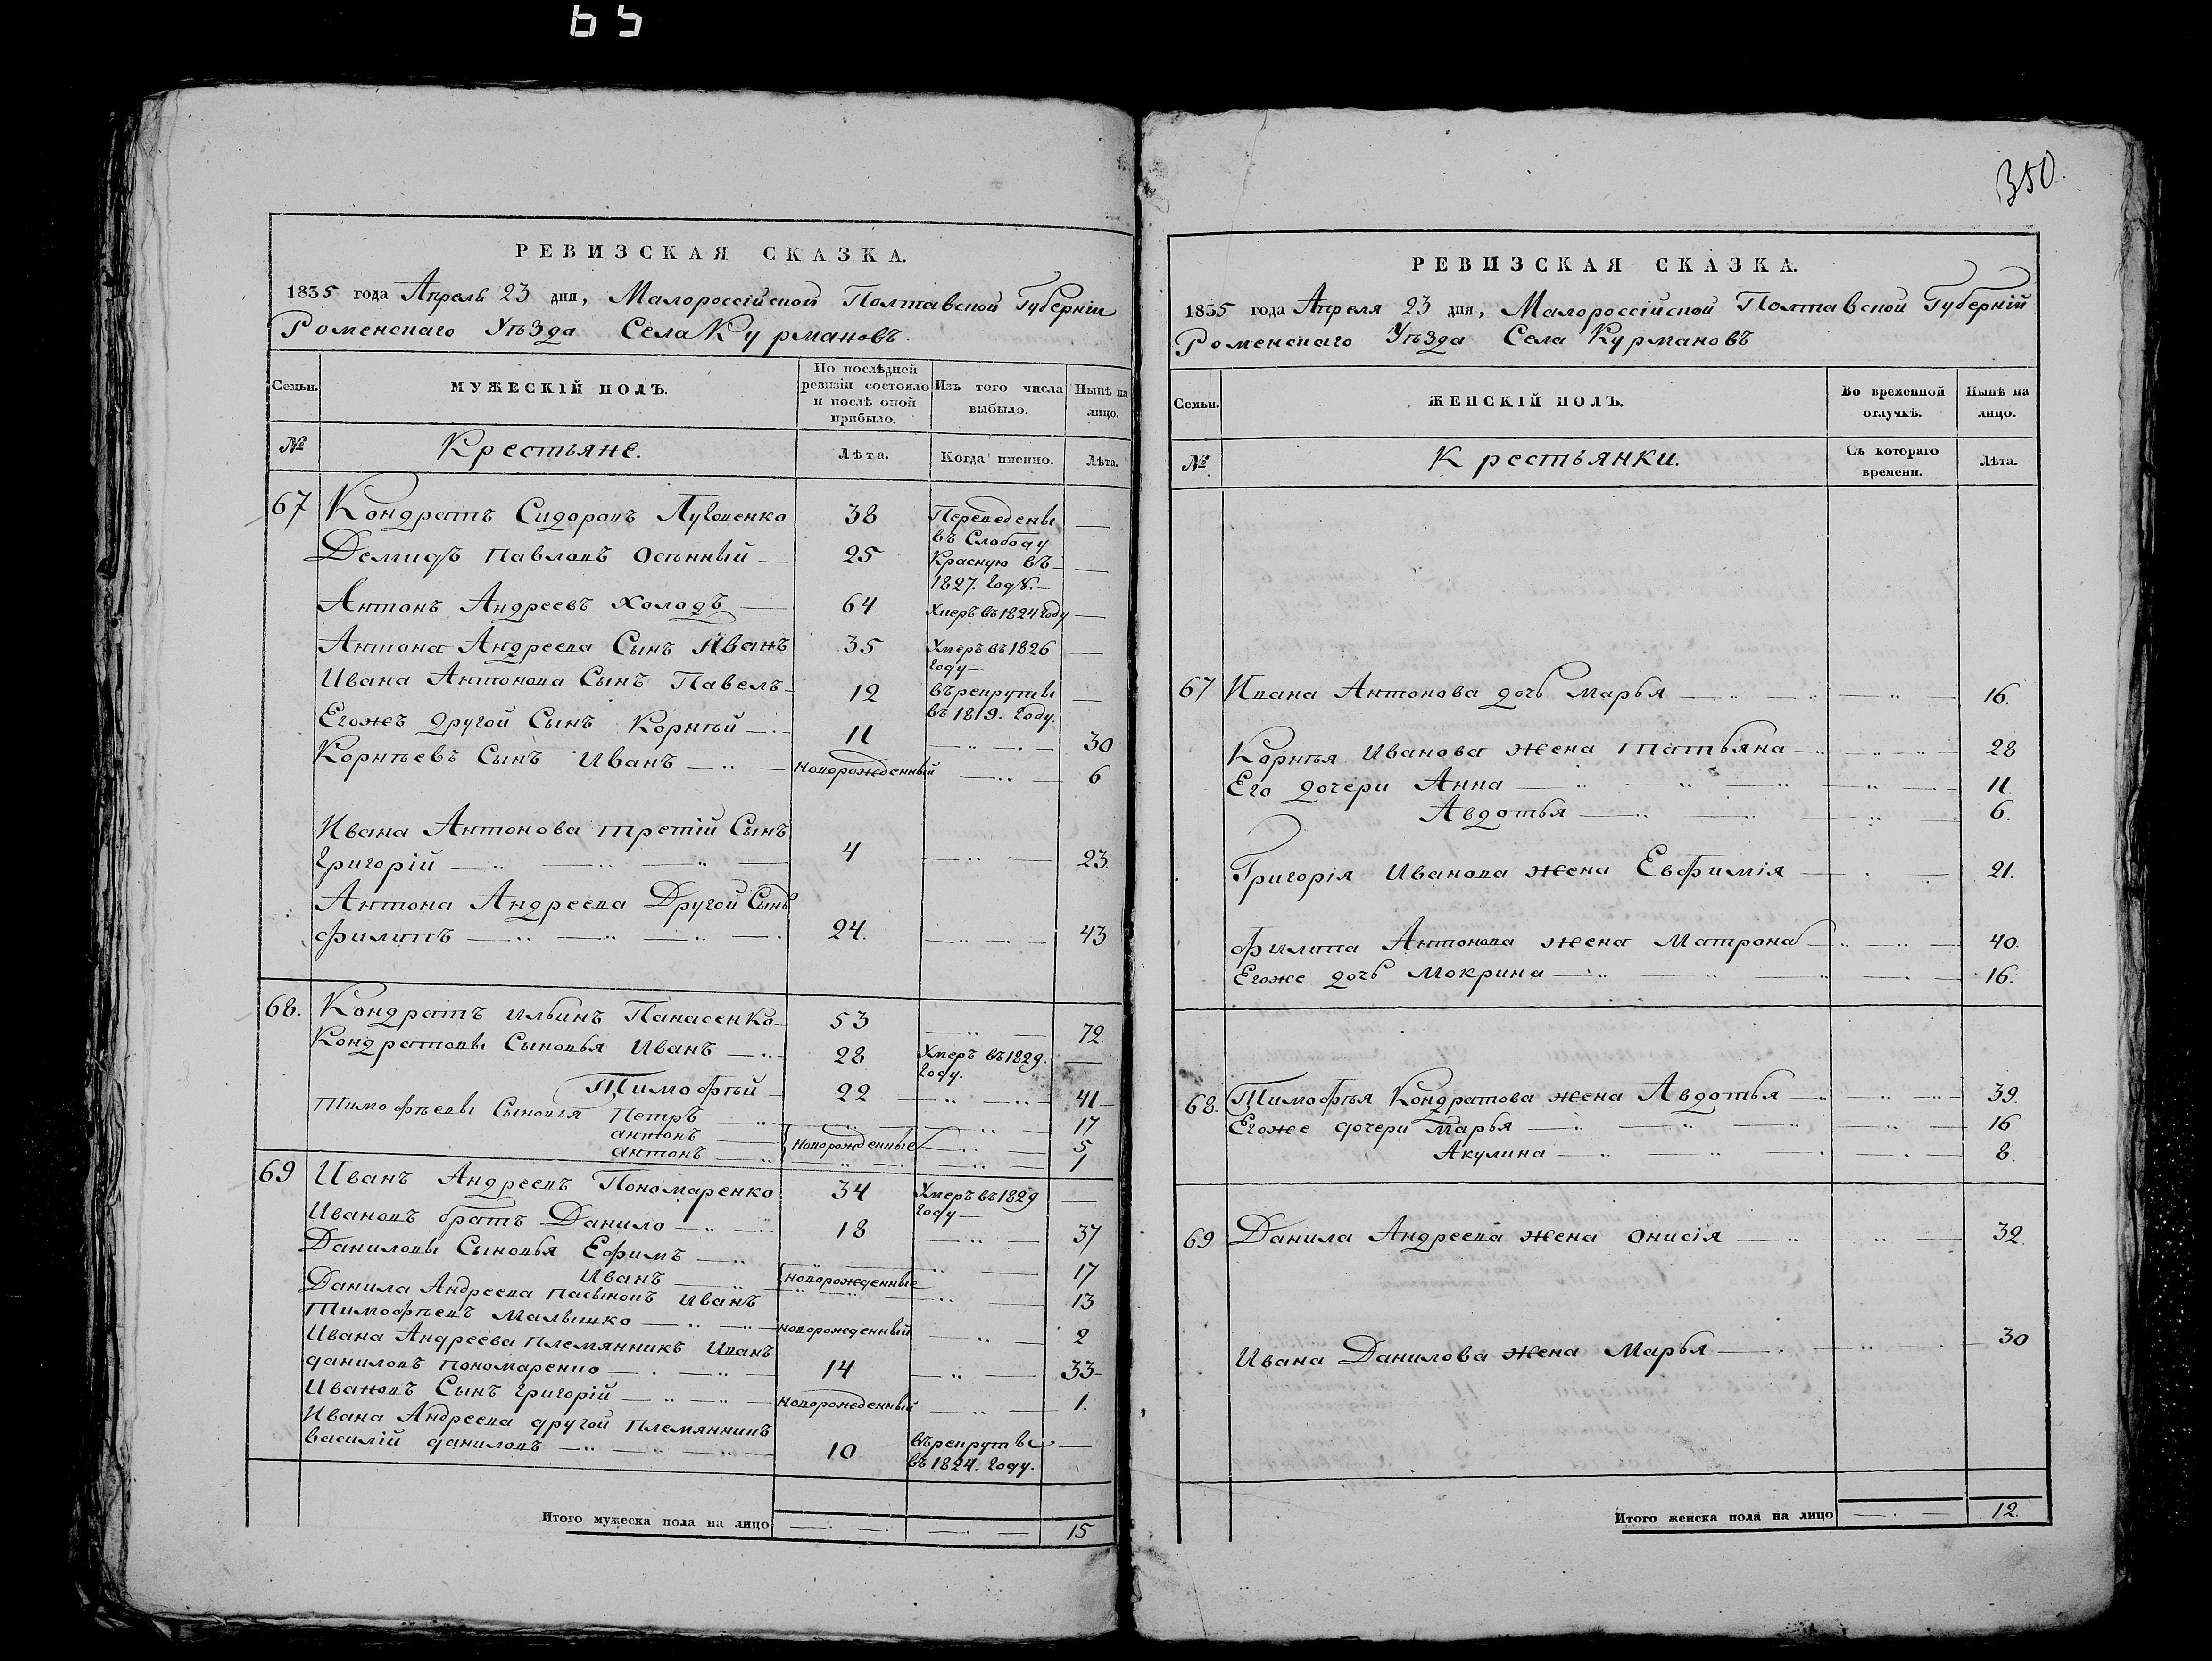 65
РЕВИЗСКАЯ СКАЗКА.
1835 года Апрель 23 дня, Малороссійской Полтавской Губерніи
Роменскаго Уѣзда Села Курмановъ.
Семьи.
МУЖЕСКІЙ ПОЛЪ.
По послѣдней ревизіи состояло и послѣ оной прибыло.
Изъ того числа выбыло.
Нынѣ на лицо.
№
Крестьяне.
Лѣта.
Когда именно.
Лѣта.
67 Кондратъ Сидоровъ 38 Переведены —
въ Слободу
Демидъ Павловъ Осѣнный — 25 Красную въ —
1827. году. —
Антонъ Андреевъ Холодъ — 64 Умеръ въ 1824 году —
Антона Андреева Сынъ Иванъ 35 Умеръ въ 1826 —
году —
Ивана Антонова Сынъ Павелъ — 12 въ рекруты —
въ 1819. году.
Егожъ другой Сынъ Корнѣй — 11 — 30
Корнѣевъ Сынъ Иванъ — новорожденный — 6
Ивана Антонова третій Сынъ
Григорій — 4 — 23.
Антона Андреева Другой Сынъ
Филипъ — 24. — 43
68. Кондратъ Ильинъ Панасенко — 53 — 72.
Кондратовы Сыновья Иванъ — 28 Умеръ въ 1829. —
году.
Тимофѣй — 22 — 41 —
Тимофѣевы Сыновья Петръ — 17
антонъ — новорожденные — 5
антонъ — 1
69 Иванъ Андреевъ Пономаренко 34 Умеръ въ 1829 —
году —
Ивановъ братъ Данило — 18 — 37
Даниловы Сыновья Ефимъ — 17
Иванъ — новорожденные — 13
Данила Андреева пасынокъ Иванъ
Тимофѣевъ Малышко — новорожденный — 2
Ивана Андреева племянникъ Иванъ
даниловъ пономаренко — 14 — 33 —
Ивановъ Сынъ Григорій — новорожденный — 1.
Ивана Андреева другой племянникъ
василій даниловъ — 10 въ рекруты —
въ 1824. году.
Итого мужеска пола на лицо — — 15
350.
РЕВИЗСКАЯ СКАЗКА.
1835 года Апреля 23 дня, Малороссійской Полтавской Губерній
Роменскаго Уѣзда Села Курмановъ
Семьи.
ЖЕНСКІЙ ПОЛЪ.
Во временной отлучкѣ.
Нынѣ на лицо.
№
Крестьянки.
Съ котораго времени.
Лѣта.
67 Ивана Антонова дочь Марья — 16.
Корнѣя Иванова жена Татьяна — 28
Его дочери Анна — 11.
Авдотья — 6.
Григорія Иванова жена Евфимія — 21.
Филипа Антонова жена Матрона — 40.
Егоже дочь Мокрина — 16.
68. Тимофѣя Кондратова жена Авдотья — 39.
Егоже дочери Марья — 16
Акулина — 8.
69 Данила Андреева жена Онисія — 32.
Ивана Данилова жена Марья — 30
Итого женска пола на лицо — 12.